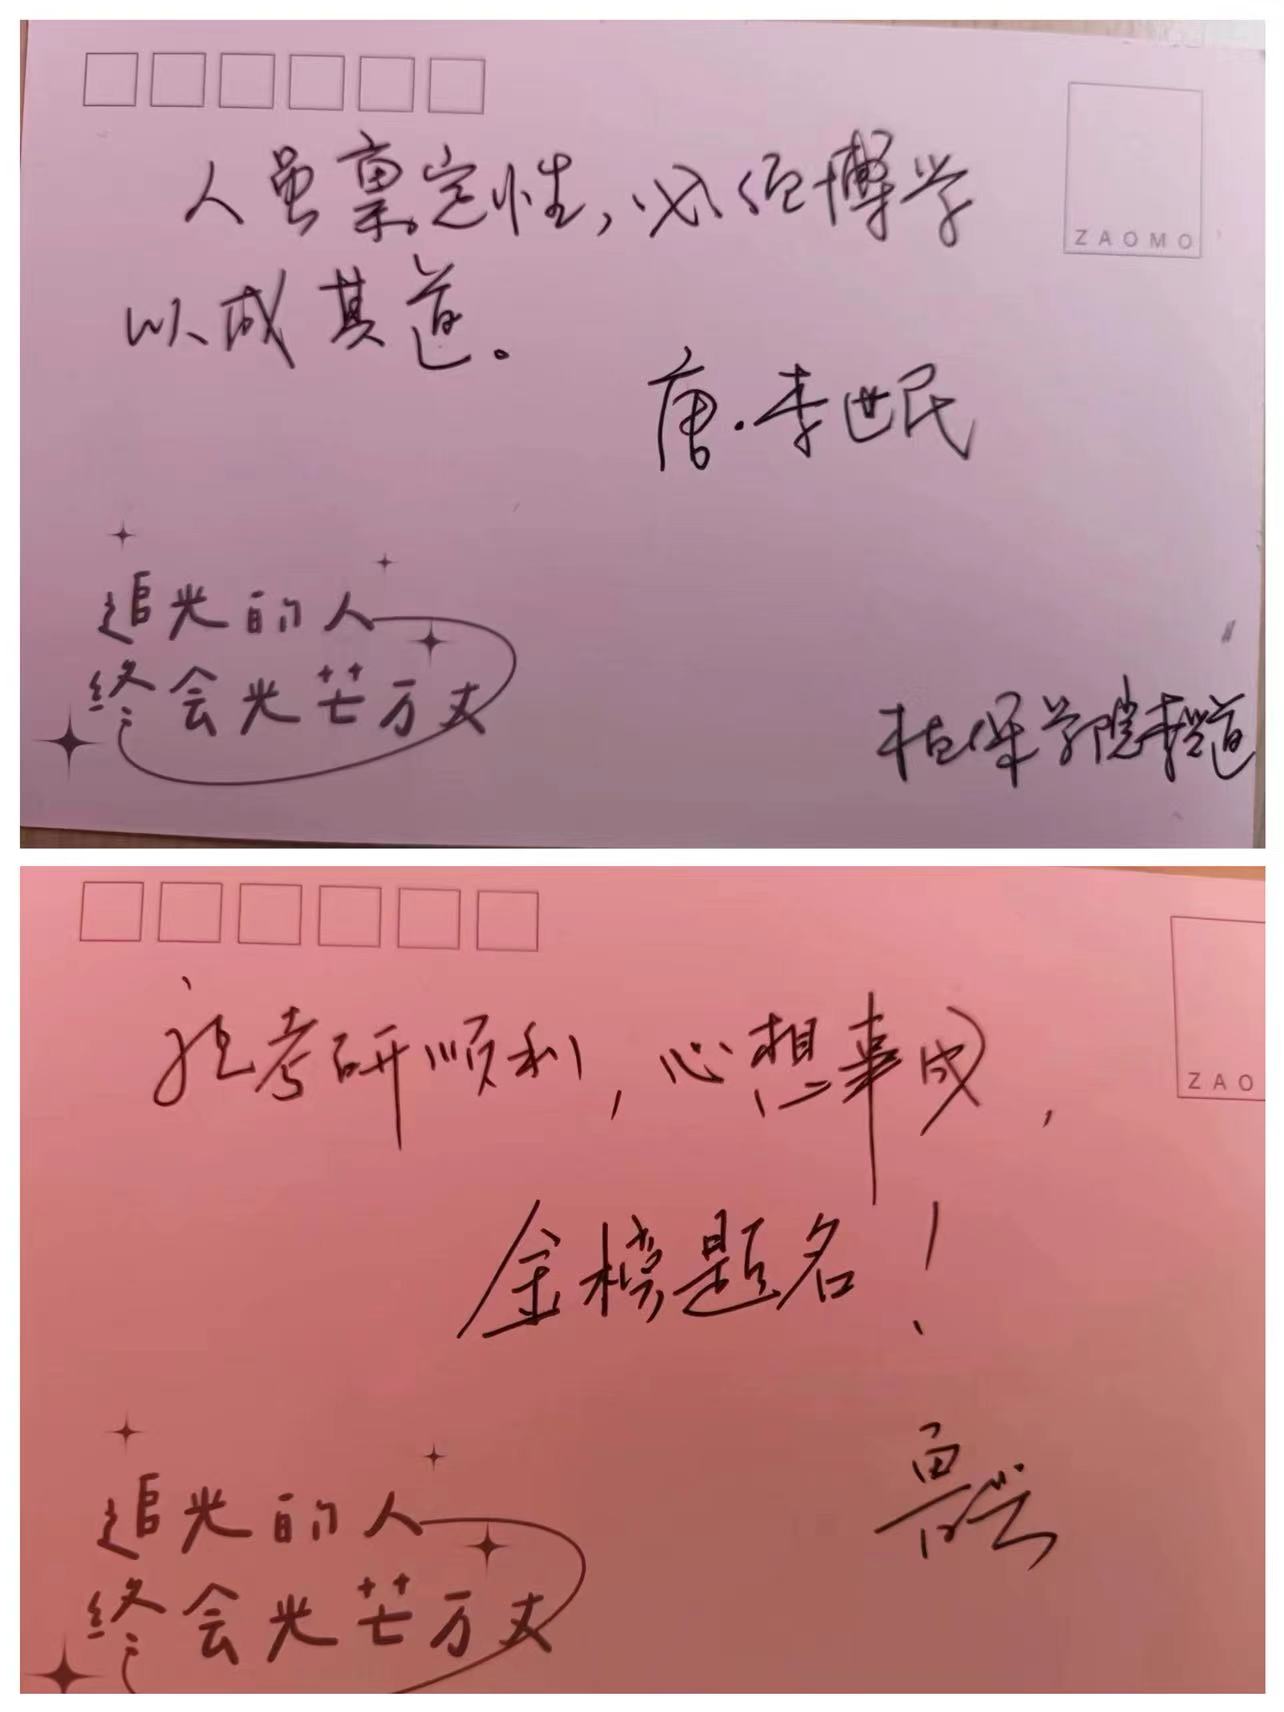 人虽禀定性，必须博学
以成其道。
唐·李世民
ZAOMO
追光的人
终会光芒万丈
植保学院李道
祝考研顺利，心想事成，
金榜题名！
ZAO
追光的人
终会光芒万丈